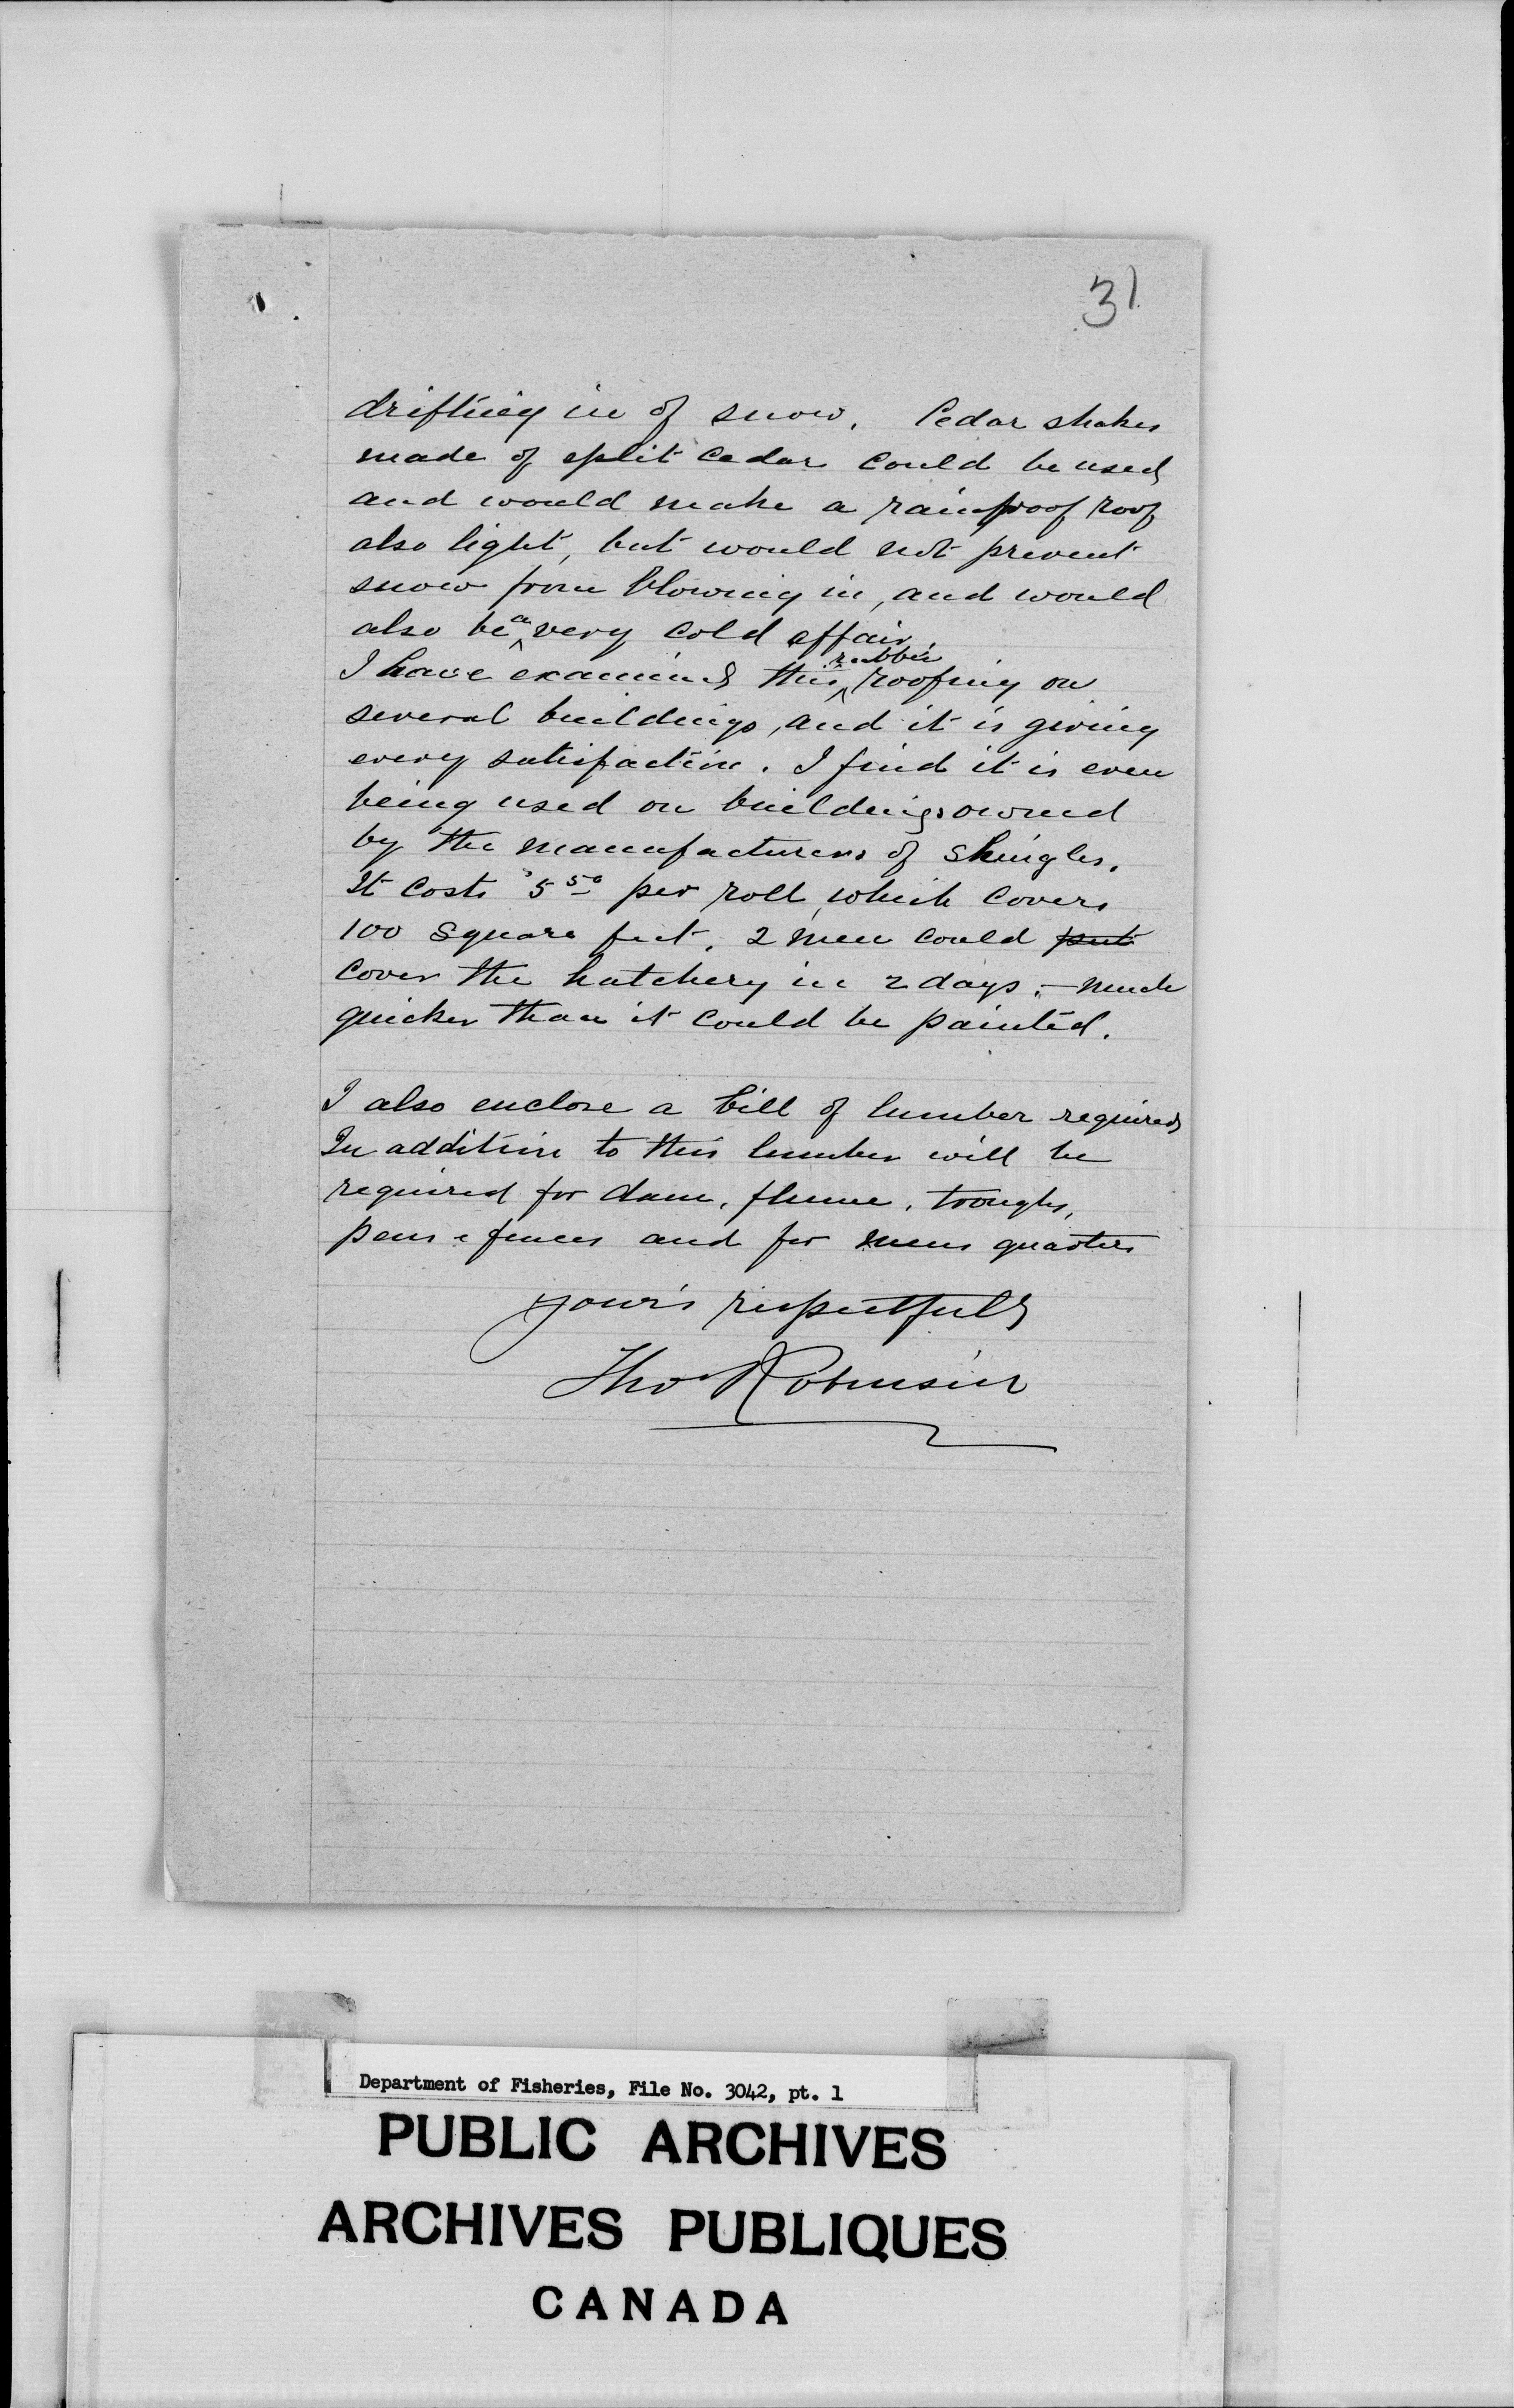 31
drifting in of snow. Cedar shakes
made of split cedar could be used
and would make a rainproof roof
also light, but would not prevent
snow from blowing in, and would
also be a very cold affair.
I have examined this rubber roofing on
several buildings, and it is giving
every satisfaction. I find it is even
being used on buildings owned
by the manufacturers of shingles.
It costs $5 50 per roll, which covers
100 square feet. 2 men could put
cover the hatchery in 2 days, - much
quicker than it could be painted.
I also enclose a bill of lumber required
In addition to this lumber will be
required for dam, flume, troughs,
pens & fences and for mens quarters
Your's respectfully
Tho Robinson
Department of Fisheries, File No. 3042, pt. 1
PUBLIC ARCHIVES
ARCHIVES PUBLIQUES
CANADA